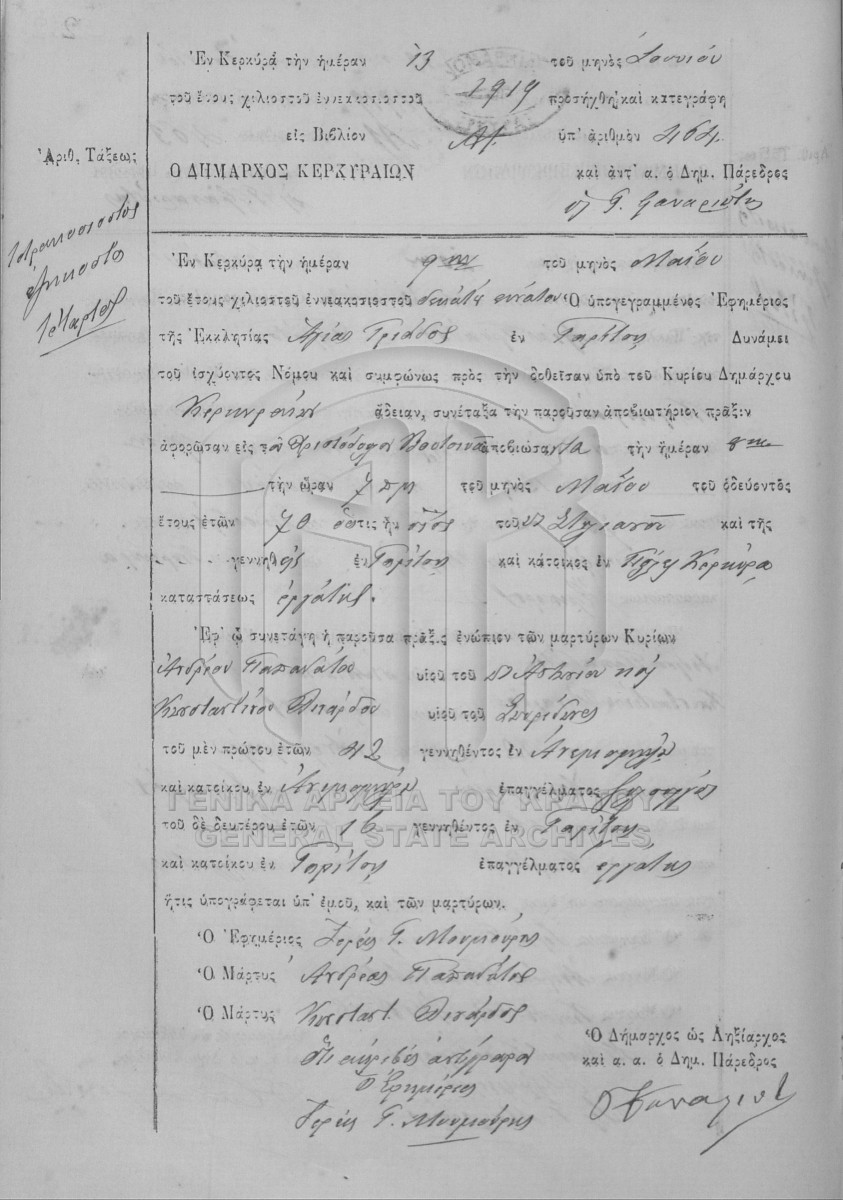 Ἐν Κερκύρᾳ τὴν ἡμέραν 13 τοῦ μηνὸς Ἰουνίου
τοῦ ἔτους χιλιοστοῦ ἐννεακοσιοστοῦ 1919 προσήχθη καὶ κατεγράφη
εἰς Βιβλίον Α/. ὑπ' ἀριθμὸν 424
Ὁ ΔΗΜΑΡΧΟΣ ΚΕΡΚΥΡΑΙΩΝ καὶ ἀντ' α. ὁ Δημ. Πάρεδρος
Ἀριθ. Τάξεως
τετρακοσιοστὸς
εἰκοστὸς
τέταρτος
Ἐν Κερκύρᾳ τὴν ἡμέραν 9ην τοῦ μηνὸς Μαΐου
τοῦ ἔτους χιλιοστοῦ ἐννεακοσιοστοῦ δεκάτου ἐννάτου Ὁ ὑπογεγραμμένος Ἐφημέριος
τῆς Ἐκκλησίας Ἁγίας Τριάδος ἐν Γαρίτσῃ Δυνάμει
τοῦ ἰσχύοντος Νόμου καὶ συμφώνως πρὸς τὴν δοθεῖσαν ὑπὸ τοῦ Κυρίου Δημάρχου
Κερκυραίων ἄδειαν, συνέταξα τὴν παροῦσαν ἀποβιωτήριον πρᾶξιν
ἀφορῶσαν εἰς τὸν Χριστόδουλον ἀποβιώσαντα τὴν ἡμέραν 8ην
τὴν ὥραν 7 πμ τοῦ μηνὸς Μαΐου τοῦ ὁδεύοντος
ἔτους ἐτῶν 70 ὅστις ἦν υἱὸς τοῦ Στυλιανοῦ καὶ τῆς
γεννηθεὶς ἐν Γαρίτσῃ καὶ κάτοικος ἐν Πόλει Κερκύρᾳ
καταστάσεως ἐργάτης.
Ἐφ' ᾧ συνετάγη ἡ παροῦσα πρᾶξις ἐνώπιον τῶν μαρτύρων Κυρίων
Ἀνδρέου Παπανάτου υἱοῦ τοῦ Ἀντωνίου καὶ
Κωνσταντίνου υἱοῦ τοῦ Σπυρίδωνος
τοῦ μὲν πρώτου ἐτῶν 42 γεννηθέντος ἐν Ἀνεμομύλῳ
καὶ κατοίκου ἐν Ἀνεμομύλῳ ἐπαγγέλματος ξυλουργὸς
τοῦ δὲ δευτέρου ἐτῶν 16 γεννηθέντος ἐν Γαρίτσῃ
καὶ κατοίκου ἐν Γαρίτσῃ ἐπαγγέλματος ἐργάτης
ἥτις ὑπογράφεται ὑπ' ἐμοῦ, καὶ τῶν μαρτύρων.
Ὁ Ἐφημέριος Ἱερεὺς Γ.
Ὁ Μάρτυς Ἀνδρέας Παπανάτος
Ὁ Μάρτυς Κωνσταντ.
Ὅτι ἀκριβὲς ἀντίγραφον
Ὁ Ἐφημέριος
Ἱερεὺς Γ.
Ὁ Δήμαρχος ὡς Ληξίαρχος
καὶ α. α. ὁ Δημ. Πάρεδρος
ΓΕΝΙΚΑ ΑΡΧΕΙΑ ΤΟΥ ΚΡΑΤΟΥΣ
GENERAL STATE ARCHIVES